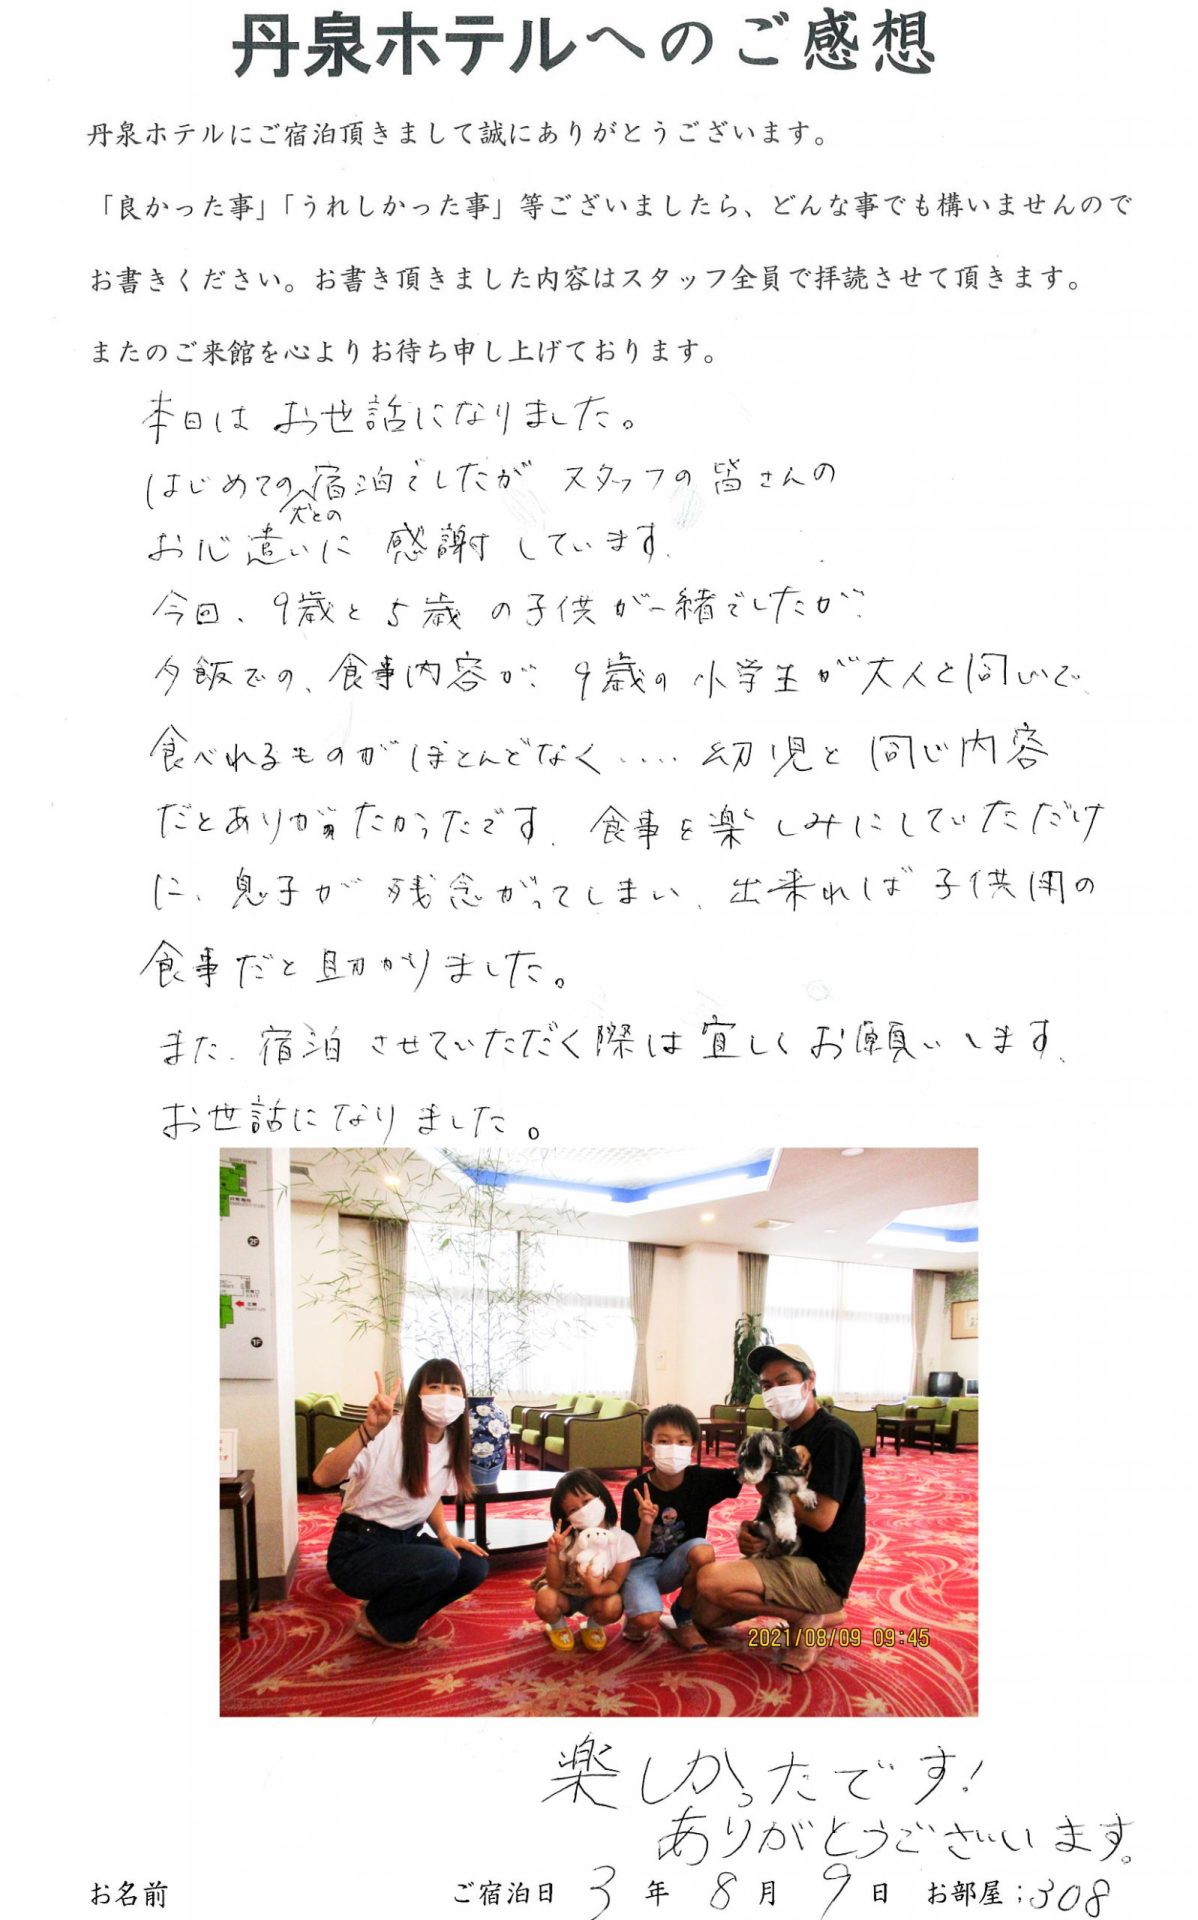 丹泉ホテルへのご感想
丹泉ホテルにご宿泊頂きまして誠にありがとうございます。
「良かった事」「うれしかった事」等ございましたら、どんな事でも構いませんので
お書きください。お書き頂きました内容はスタッフ全員で拝読させて頂きます。
またのご来館を心よりお待ち申し上げております。
本日は お世話になりました。
はじめての犬との宿泊でしたが スタッフの皆さんの
お心遣いに 感謝しています。
今回、9歳と5歳の子供が一緒でしたが、
夕飯での、食事内容が、9歳の小学生が大人と同じで、
食べれるものがほとんどなく‥‥幼児と同じ内容
だとありがたかったです。食事を楽しみにしていただけ
に、息子が残念がってしまい、出来れば子供用の
食事だと助かりました。
また、宿泊させていただく際は宜しくお願いします。
お世話になりました。
2F
1F
2021/08/09 09:45
楽しかったです!
ありがとうございます。
お名前 ご宿泊日 3 年 8 月 9 日 お部屋;308